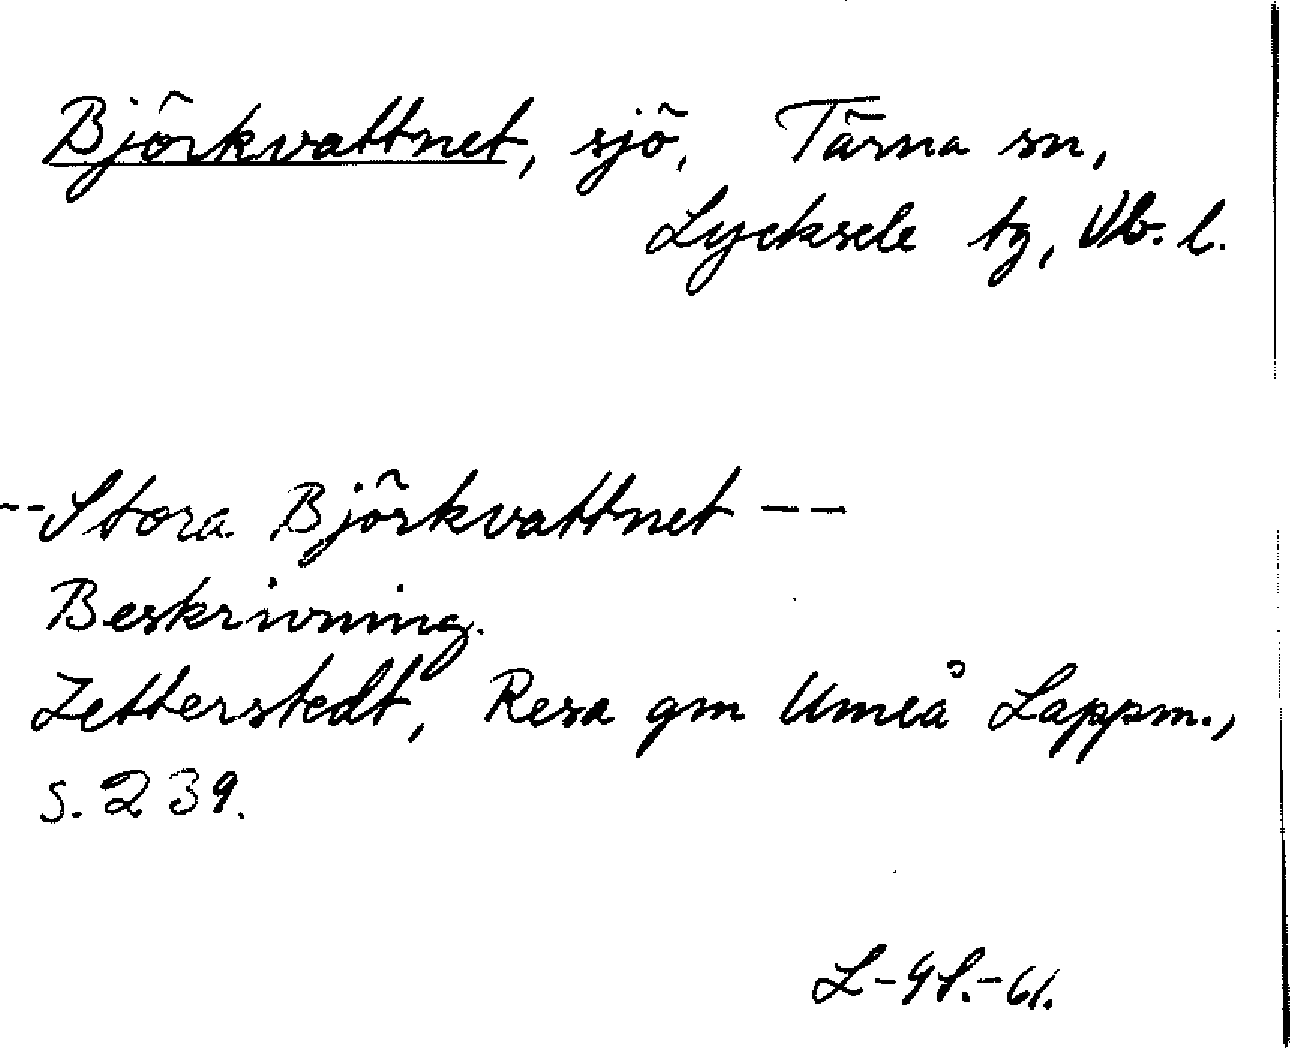 Björkvattnet, sjö, Tärna sn,
Lycksele tg, Vb. l.
--Stora Björkvattnet --
Beskrivning.
Zetterstedt, Resa gm Umeå Lappm.,
s. 239.